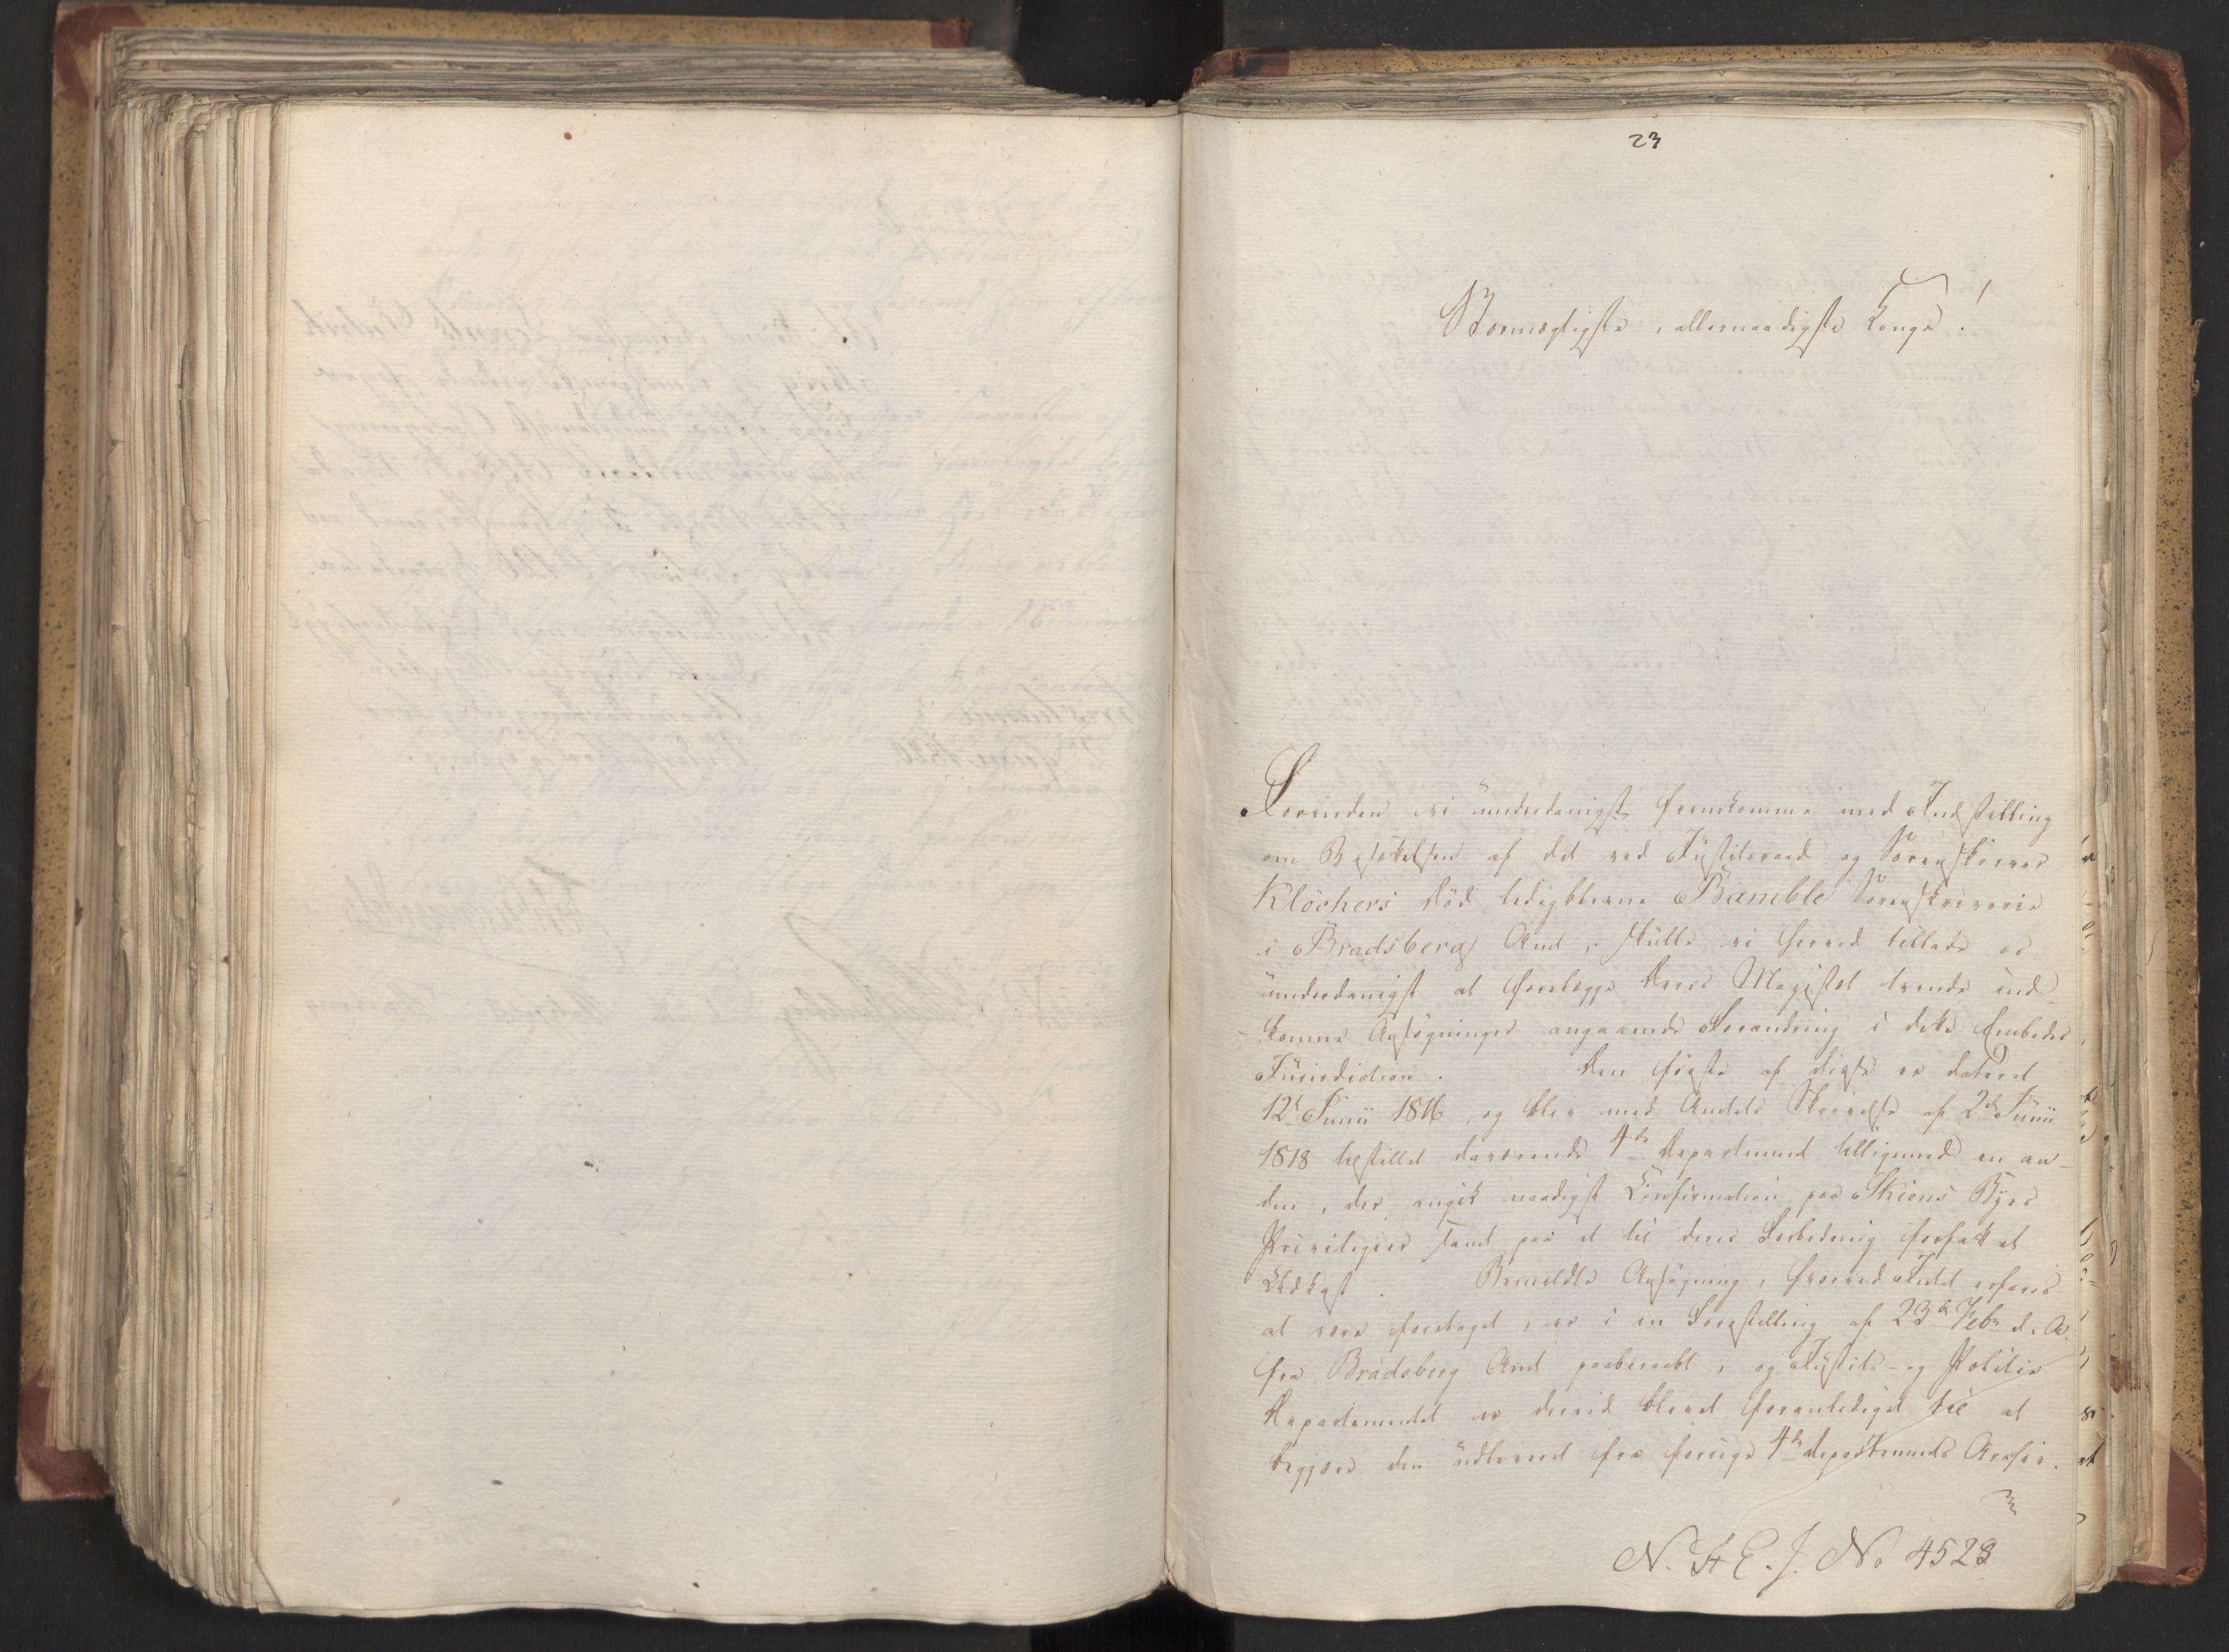 23
Stormægtigste, allernaadigste Konge!
Forinden vi underdanigst fremkomme med Indstilling
om Besættelsen af det ved Justitsraad og Sorenskriver
Klöchers Död ledigblevne Bamble Sorenskriverie
i Bradsberg Amt, skulle vi herved tillade os
underdanigst at forelægge Deres Majestæt tvende ind-
-komne Ansøgninger angaaende Forandring i dette Embedes
Jurisdiction. Den første af disse er dateret
12te Junii 1816, og blev med Amtets Skrivelse af 2den Junii
1818 tilstillet daværende 4de Departement tilligemed en an-
den, der angik naadigst Confirmation paa Skiens Byes
Privilegier samt paa et til deres Forbedring forfattet
Udkast. Bemeldte Ansøgning, hvorved Intet erfares
at være foretaget, er i en Forestilling af 23de Febr d. A.
fra Bradsberg Amt paaberaabt, og Justits- og Politie
Departementet er derved blevet foranlediget til at
begjære den udleveret fra forrige 4de Departements Archiv.
N. St E. J. No 4528